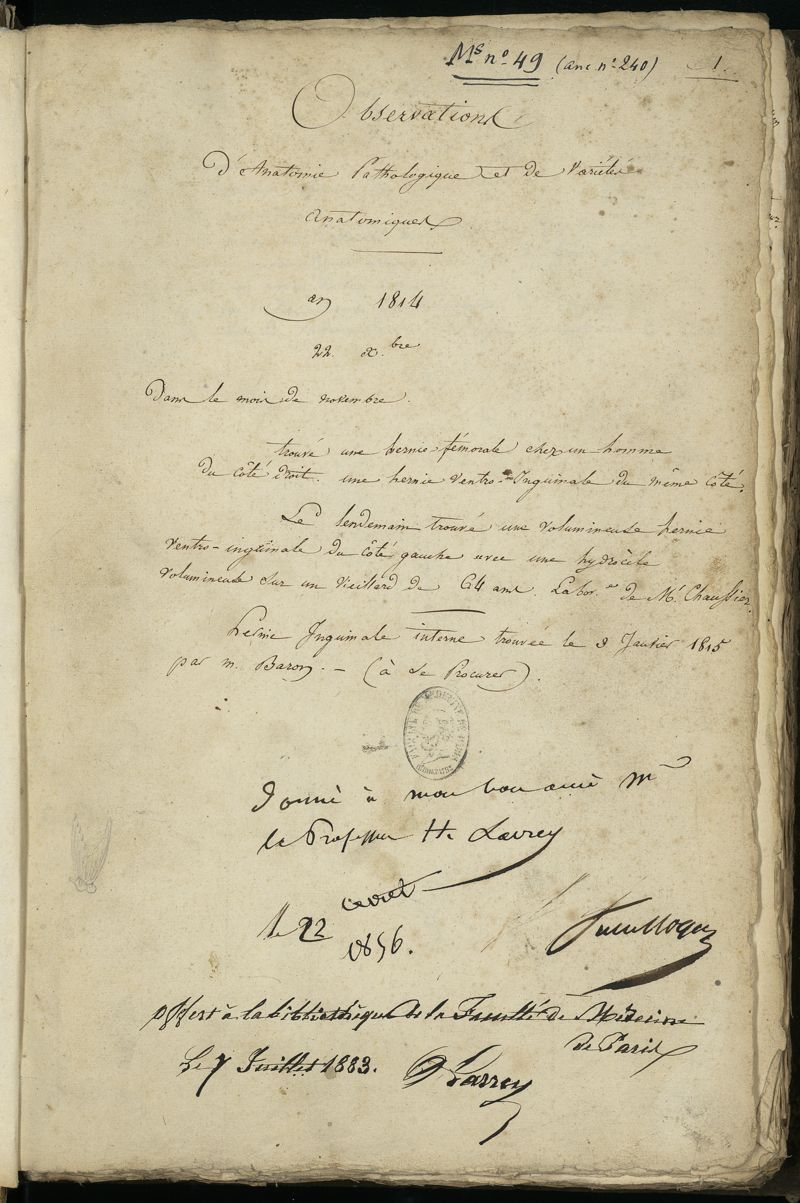 Ms nº 49 (anc nº 240) 1.
Observations
d'Anatomie Pathologique et de Variétés
Anatomiques.
an 1814
22. xbre
Dans le mois de novembre.
trouvé une hernie fémorale chez un homme
du côté droit. une hernie ventro-Inguinale du même côté.
Le lendemain trouvé une volumineuse hernie
ventro-inguinale du côté gauche avec une hydrocèle
volumineuse sur un vieillard de 64 ans. Labor.e de Mr. Chaussier.
hernie Inguinale interne trouvée le 3 Janvier 1815
par m. Baron. - (à se Procurer).
donné à mon bon ami Mr
le Professeur H. Larrey
le 22
1856.
offert à la bibliothèque de la Faculté de Médecine
de Paris
Le 7 Juillet 1883. Larrey